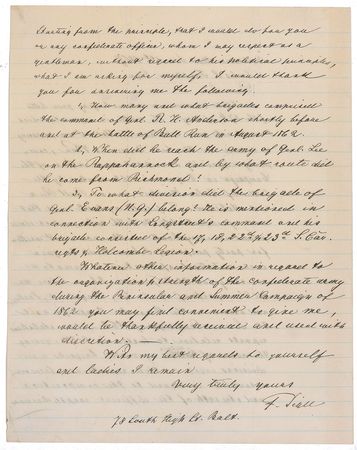 Starting from the principle, that I would do for you
or any confederate officer, whom I may respect as a
gentleman, without regard to his political principles,
what I am asking for myself, I would thank
you for answering me the following.
1, How many and what brigades comprised
the command of Genl. R. H. Anderson shortly before
and at the battle of Bull Run in August 1862.
2, When did he reach the army of Genl. Lee
on the Rappahannock and by what route did
he come from Richmond?
3, To what division did the brigade of
Genl. Evans (N.G.) belong? He is mentioned in
connection with Longstreet's command and his
brigade consisted of the 17, 18, 22nd & 23d S. Car.
regts & Holcombe Legion.
Whatever other information in regard to
the organization & strength of the confederate army
during the Peninsular and Summer Campaign of
1862 you may find convenient to give me,
would be thankfully received and used with
discretion.
With my best regards to yourself
and ladies I remain
Very truly yours
78 South High St. Balt.